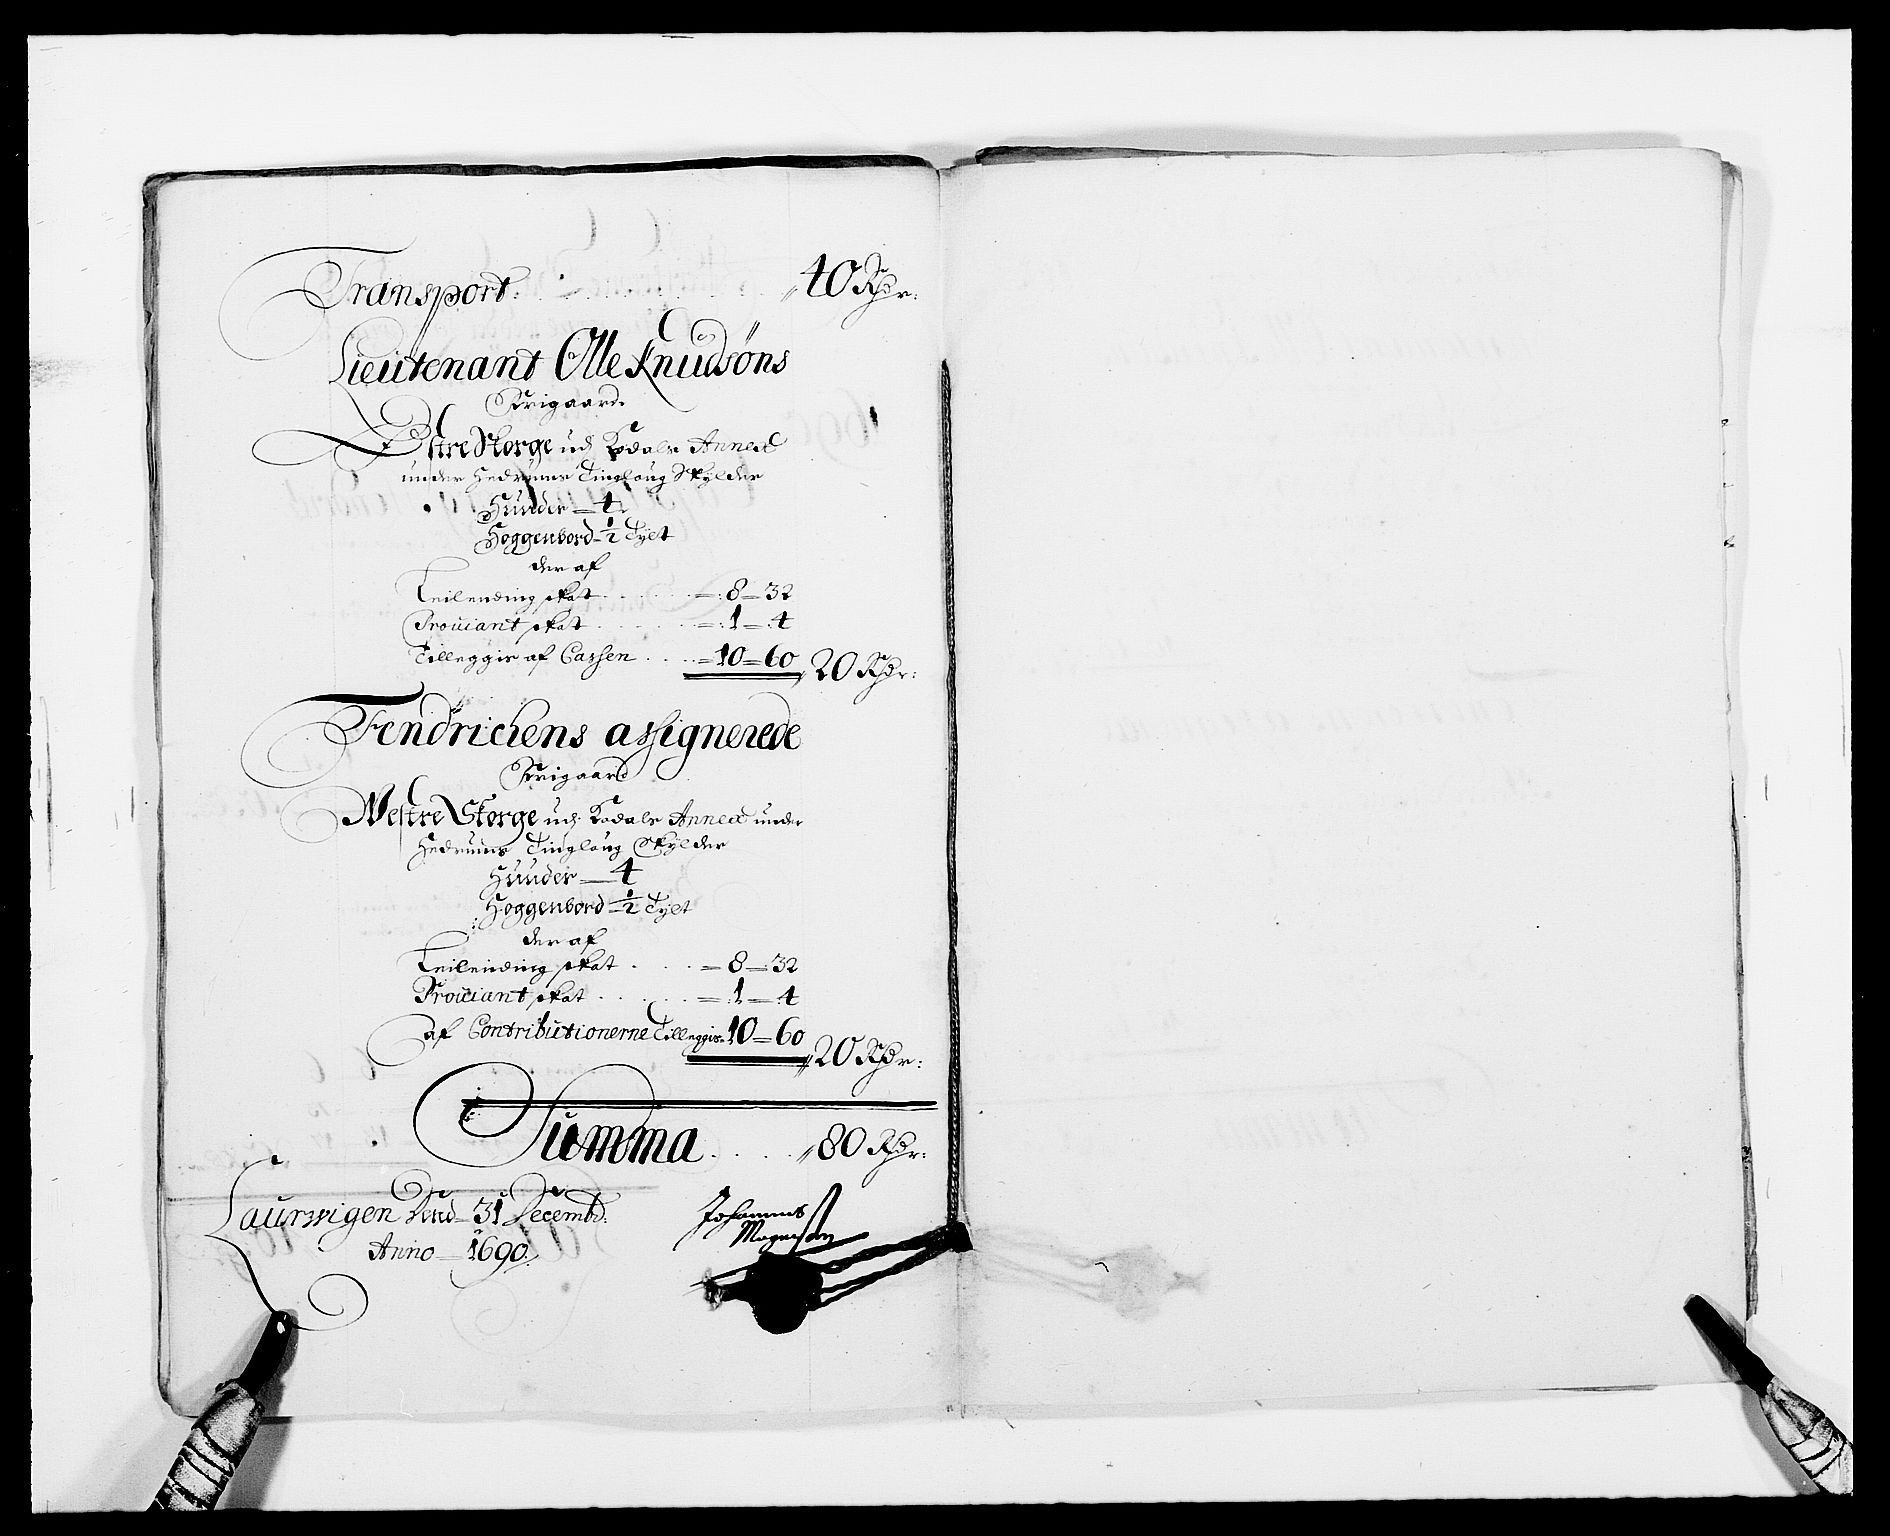 Transport . . . . . . . . . . . 40 Rdr:
Lieutenant Olle Knudsøns
Frigaard
Østre Storge ud Kodals Annex
under Hedrums Tinglaug Skylder
Hunder = 4
Hoggenbord = 1/2 Tylt
der af
Leilending skat . . . . . =: 8 = 32
Proviant skat . . . . . =: 1 = 4
Tilleggis af Cassen . . . . = 10 = 60 20 Rdr:
Fendrichens assignerede
Frigaard
Westre Storge ud Kodals Annex under
Hedrums Tinglaug Skylder
Hunder = 4
Hoggenbord = 1/2 Tylt
der af
Leilending skat . . . . = 8 = 32
Proviant skat . . . . . =: 1 = 4
af Contributionerne Tilleggis = 10 = 60 20 Rdr:
Summa . . . . . 80 Rdr:
Laurwigen Dend 31 Decembr:
Anno = 1690.
Johannes